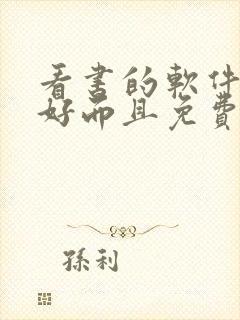 看書的軟件
好而且免費
孫利